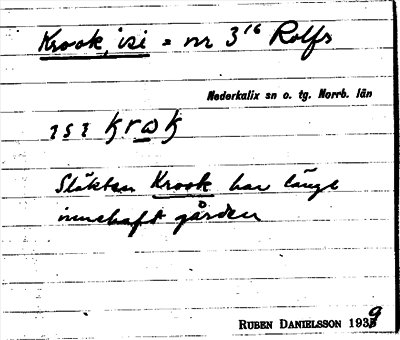 Krook, isi = nr 3¹⁶ Rolfs
Nederkalix sn o. tg. Norrb. län
Släkten Krook har länge
innehaft gården
RUBEN DANIELSSON 1939